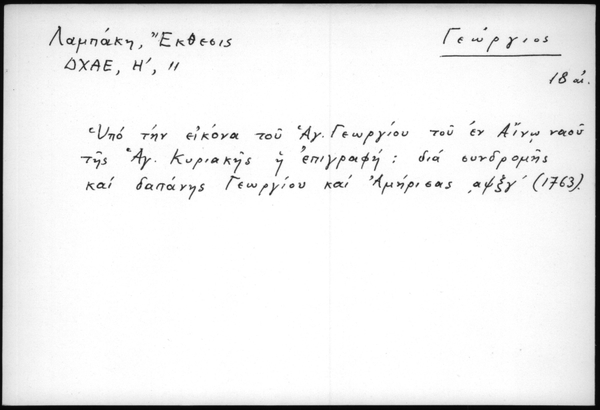 Λαμπάκη, Ἔκθεσις
Γεώργιος
ΔΧΑΕ, Η', 11
18 αἰ.
Ὑπό τήν εἰκόνα τοῦ Ἁγ. Γεωργίου τοῦ ἐν Αἴνῳ ναοῦ
τῆς Ἁγ. Κυριακῆς ἡ ἐπιγραφή: διά συνδρομῆς
καί δαπάνης Γεωργίου καί Ἀμήρισας ͵αψξγ΄ (1763).